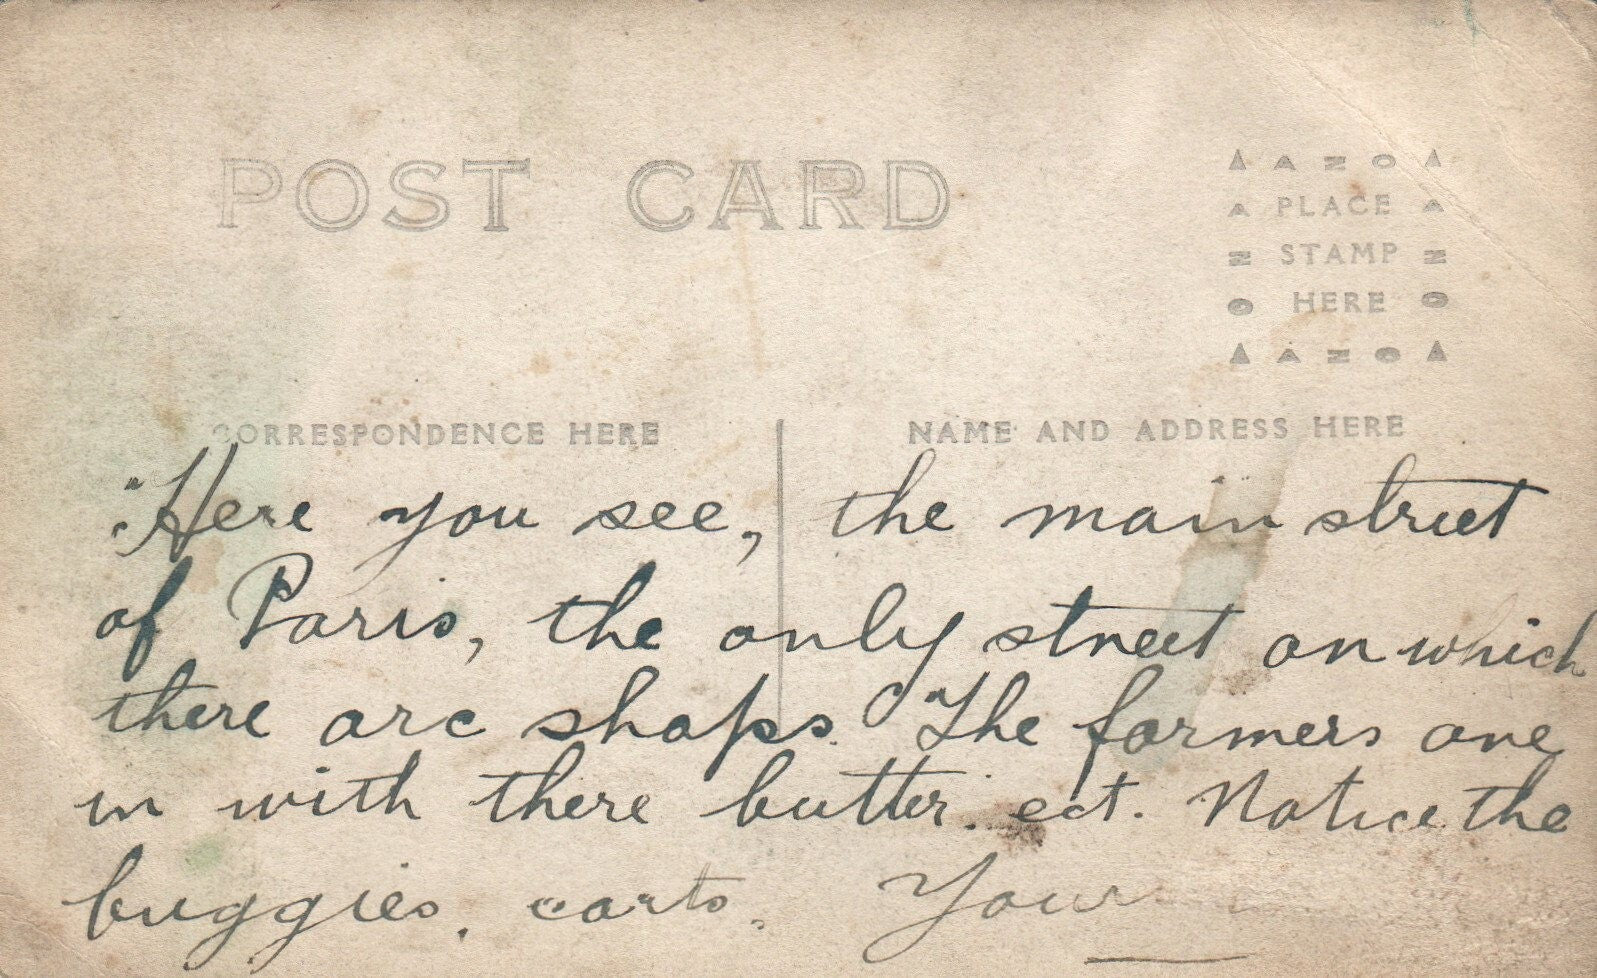 POST CARD
A A Z O A
A PLACE A
Z STAMP Z
O HERE O
A A Z O A
CORRESPONDENCE HERE
NAME AND ADDRESS HERE
"Here you see, the main street
of Paris, the only street on which
there are shops. The farmers are
in with there butter. ect. Notice the
buggies. carts.. Your